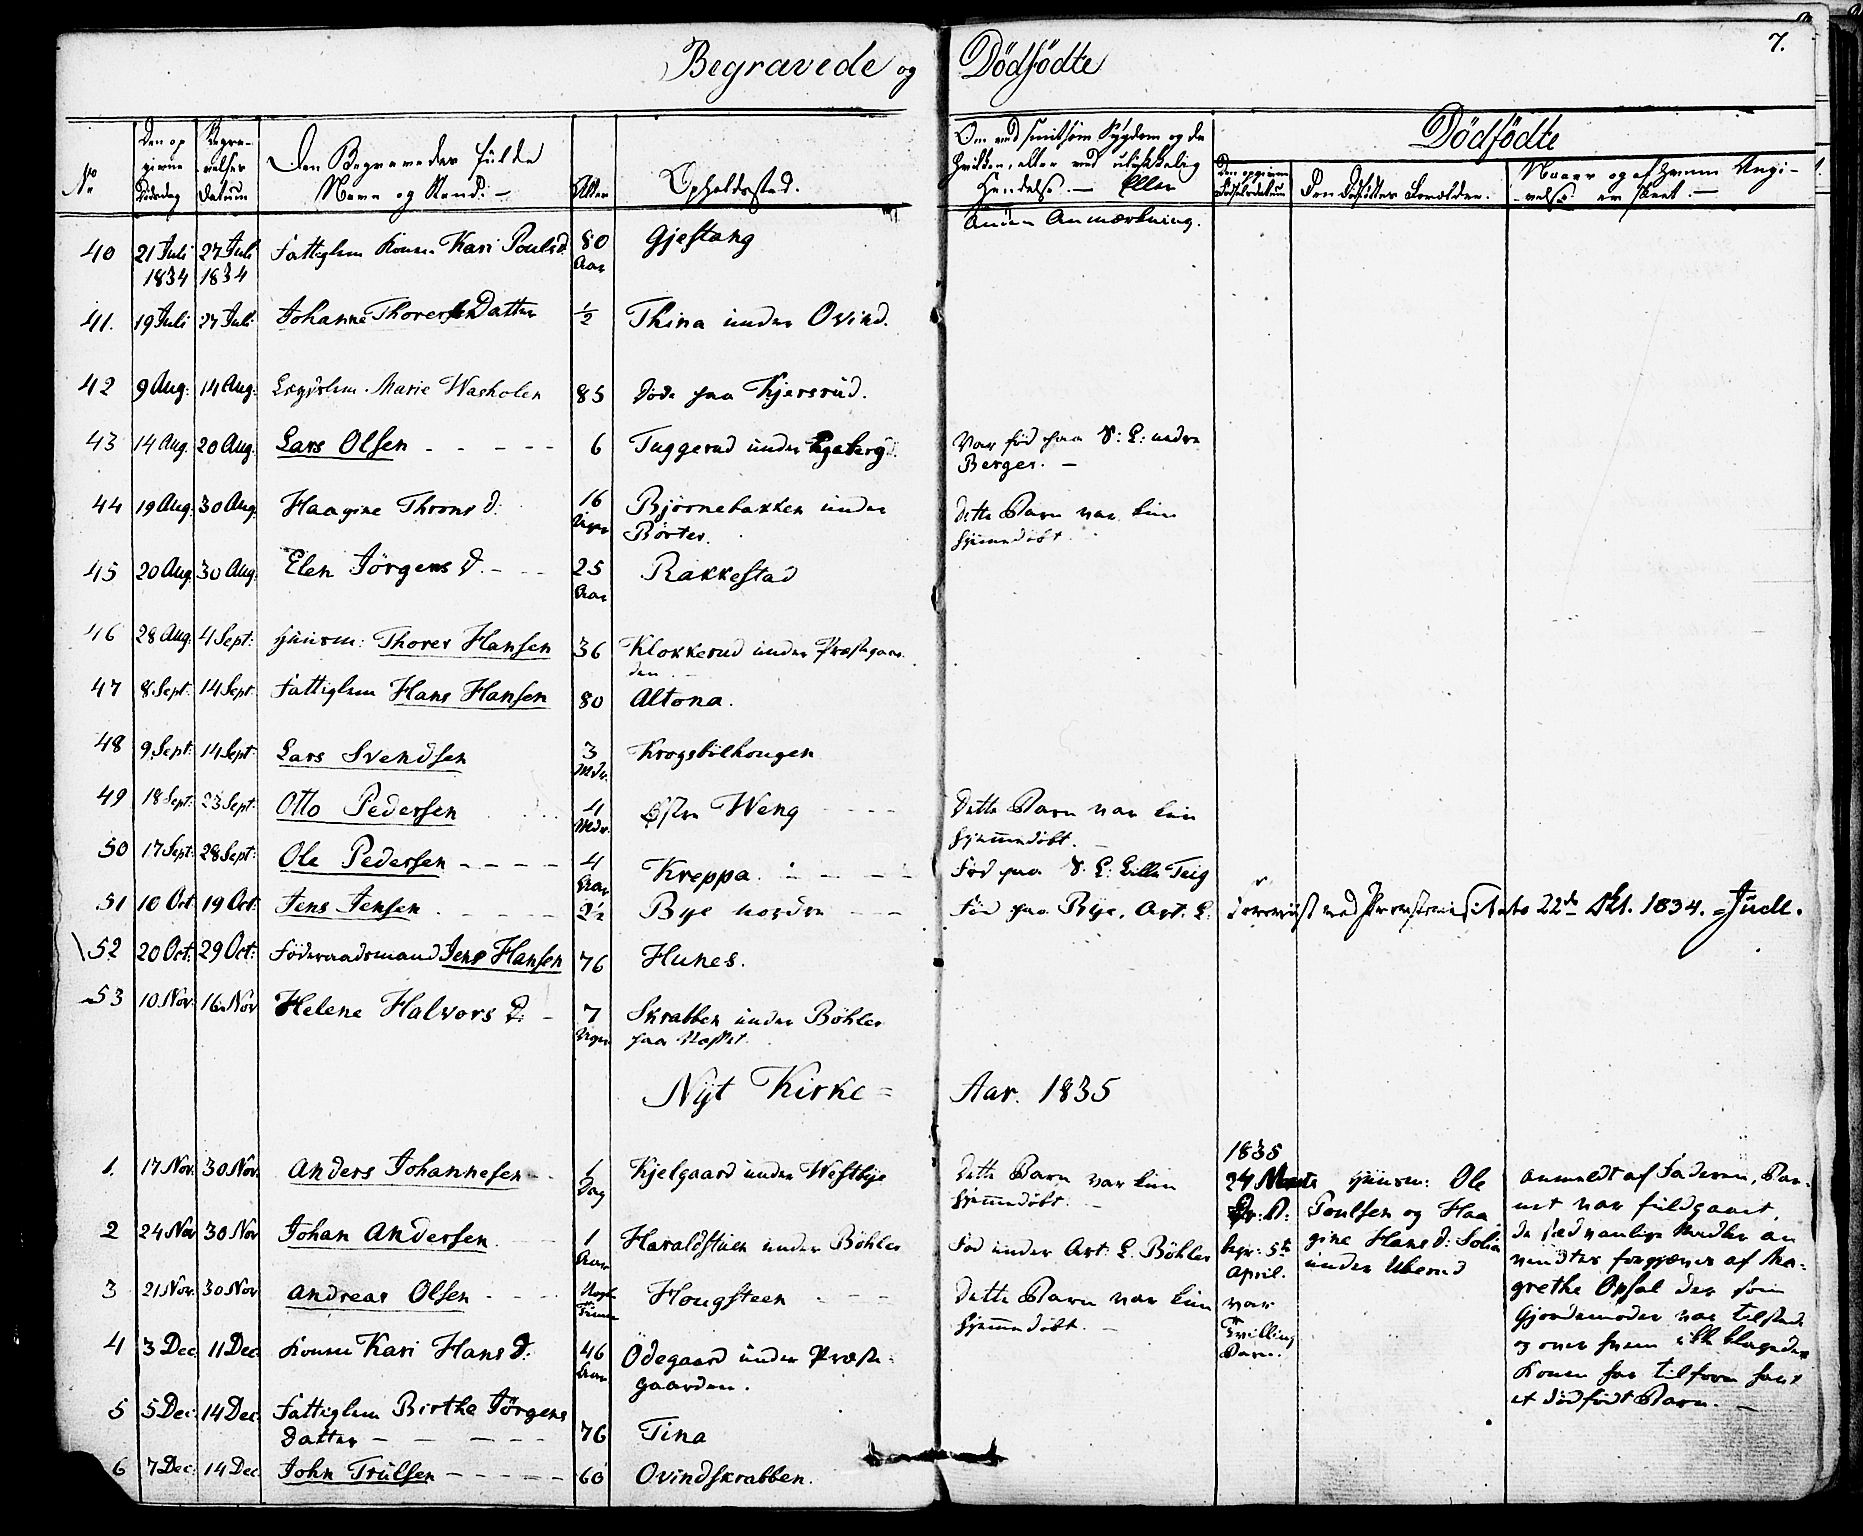 Begravede og Dödfödte
7.
No
Den opgivne Dödsdag
Begravelses Datum
Den Begravedes fulde Navn og Stand. -
Alder
Opholdssted.
Om ved smitsom Sygdom og da hvilken, eller ved ulykkelig Hændelse. - Eller anden Anmærkning.
Dödfödte
Den opgivne Födselsdatum
Den Dödfödtes Forældre.
Naar og af hvem Angivelse er skeet. -
40 21 Juli 1834 27 Juli 1834 Fattiglem Konen Kari Poulsd. 80 Aar Gjestang
41. 19 Juli 27 Juli Johanne Thoresen Datter 1/2 Thina under Ovind.
42 9 Aug: 14 Aug: Lægdslem. Marie Washolen 85 Döde paa Kjersrud.
43 14 Aug. 20 Aug. Lars Olsen - - - - 6 Tuggerud under Egeberg. Var föd paa S: E: nedre Berger. -
44 19 Aug. 30 Aug. Haagine Throns d: 16 Uger Bjørnebakken under Børter. dette Barn var kun hjemmedöbt.
45 20 Aug. 30 Aug. Elen Jörgens d. - - - 25 Aar Rakkestad
46 28 Aug. 4 Sept: Huusm: Thorer Hansen 36 Klokkerud under Præstegaarden.
47 8 Sept. 14 Sept. Fattiglem Hans Hansen 80 Altona.
48 9 Sept. 14 Sept. Lars Svendsen 3 Mdr. Krogsbölhougen
49 18 Sept. 23 Sept. Otto Pedersen 4 Mdr. Östre Weng - - - Dette Barn var kun hjemmedöbt. -
50 17 Sept. 28 Sept: Ole Pedersen - - - - 4 Aar Kreppa. - - - Föd paa S. E: Lille Teig
51 10 Oct 19 Oct: Jens Jensen - - - 2 1/2 Bye nordre - - - Föd paa Bye, Art. E: ved 22de Oct. 1834. Juell.
52 20 Oct. 29 Oct: Föderaadsmand Jens Hansen 76 Hunes.
53 10 Nov. 16 Nov Helene Halvors D. - 7 Uger Skrabben under Böhler
Nyt Kirke = Aar. 1835
1. 17 Nov. 30 Nov. Anders Johannesen - - 1 Dag Kjelgaard under Westbye Dette Barn var kun hjemmedöbt. -
2 24 Nov 30 Nov Johan Andersen 1 Aar Haraldstuen under Böhler Föd under Art: E. Böhler
3 21 Nov. 30 Nov Andreas Olsen - - - Nogle Timer Hougsteen - - - Dette Barn var kun hjemmedöbt. -
4 3 Dec. 11 Dec. Konen Kari Hans d. 46 Aar Ödegaard under Præstegaarden.
5 5 Dec: 14 Dec. Fattiglem Birthe Jörgens Datter - - - - 76 Tina
6 7 Dec: 14 Dec John Trulsen - - - - - 60 Ovindskrabben.
1835
24 Marts
begr: 5te April.
var Tvilling Barn.
Huusm: Ole
Poulsen og Haa
gine Hans d: Solia
under Uberud
anmeldt af Faderen, Bar-
net var fuldgaaet,
de sædvanlige Midler an
vendtes forgjæves af Ma-
grethe Opsal der som
Gjordemoder var tilstede
og over hvem ikke klagedes
Konen har tilforn havt
et dödfödt Barn. -